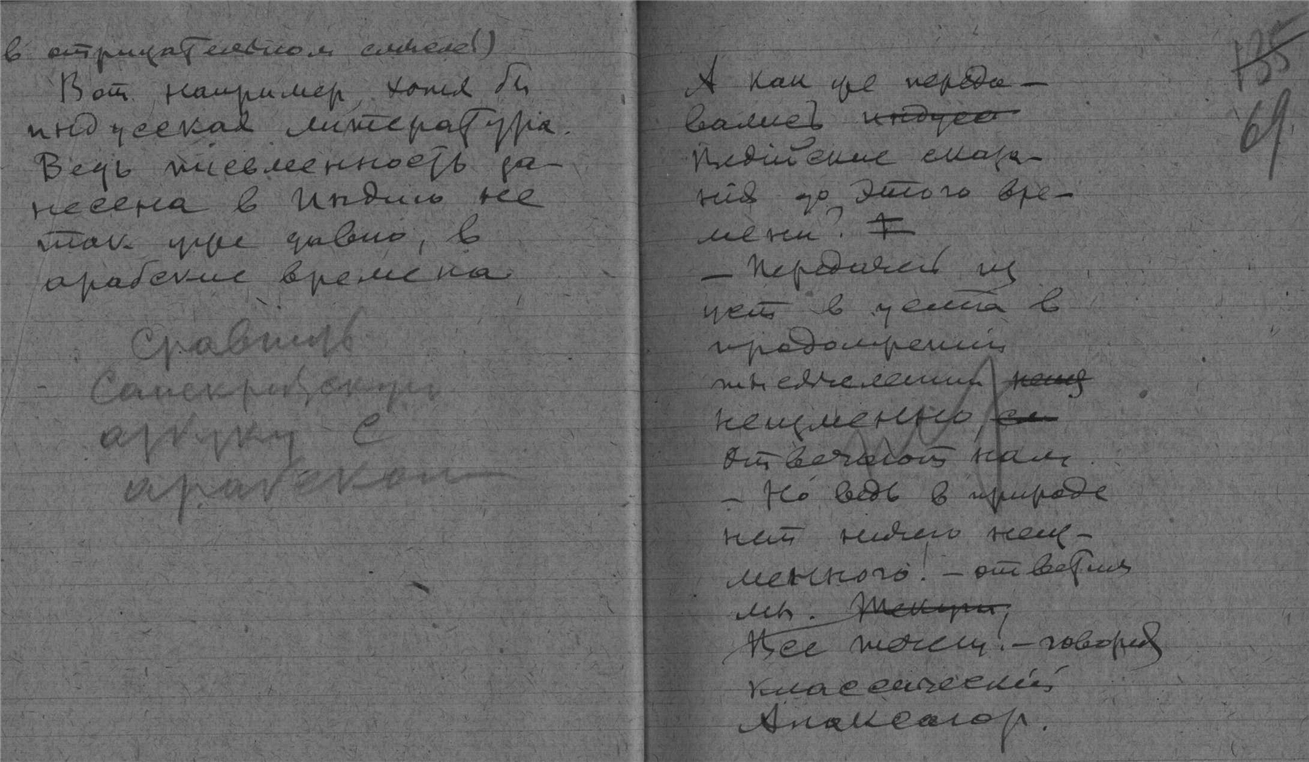 в отрицательном смысле!)
Вот, например, хотя бы
индусская литература.
Ведь письменность за-
несена в Индию не
так уже давно, в
арабские времена
Сравнить
Санскритскую
азбуку с
арабской
135
69
А как же переда-
вались индусс
Ведийские сказа-
ния до этого вре-
мени?
– Передачей из
уст в уста в
продолжении
тысячелетий
неизменно,
отвечают нам.
– Но ведь в природе
нет ничего неиз-
менного! – ответим
мы.
Все течет! – говорил
классический
Анаксагор.